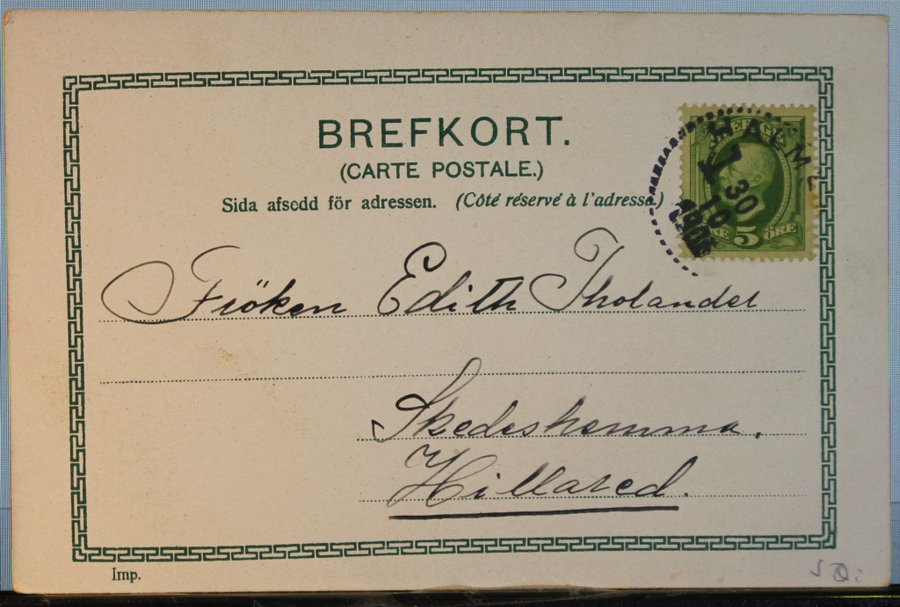 BREFKORT.
(CARTE POSTALE.)
Sida afsedd för adressen. (Côté réservé à l'adresse.)
30
10
5 ÖRE
Fröken Edith Tholander
Skedeskamma,
Hillared.
Imp.